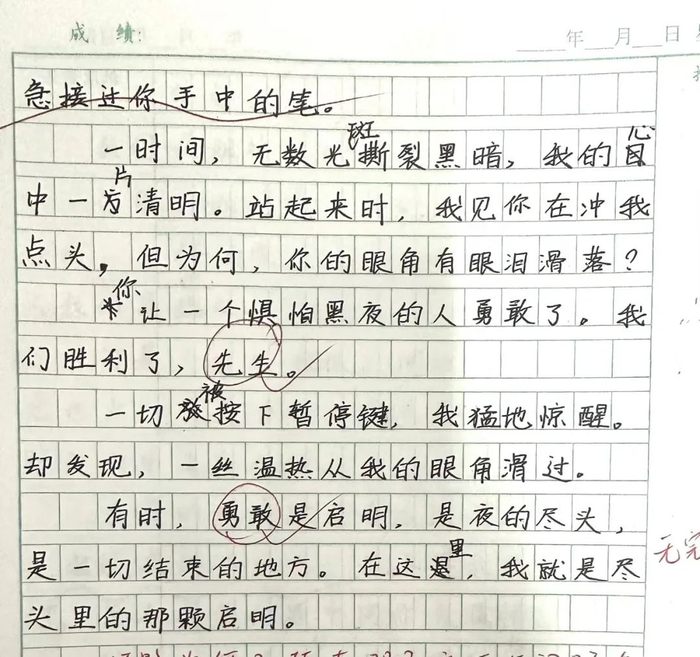 成绩:
年 月 日
急接过你手中的笔。
一时间，无数光斑撕裂黑暗，我的心
中一片清明。站起来时，我见你在冲我
点头，但为何，你的眼角有眼泪滑落？
你让一个惧怕黑夜的人勇敢了。我
们胜利了，先生。
一切被按下暂停键，我猛地惊醒。
却发现，一丝温热从我的眼角滑过。
有时，勇敢是启明，是夜的尽头，
是一切结束的地方。在这里，我就是尽
头里的那颗启明。
无完